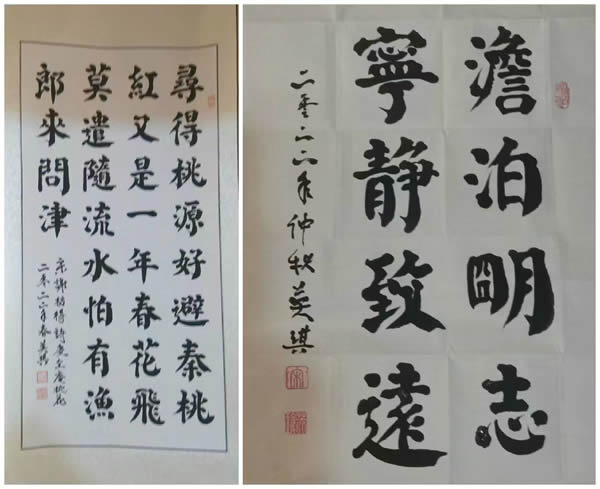 尋得桃源好避秦桃
紅又是一年春花飛
莫遣隨流水怕有漁
郎來問津
宋謝枋得詩慶全庵桃花
二零二二年春英琪
澹泊朙志
寧静致遠
二零二二年仲秋英琪